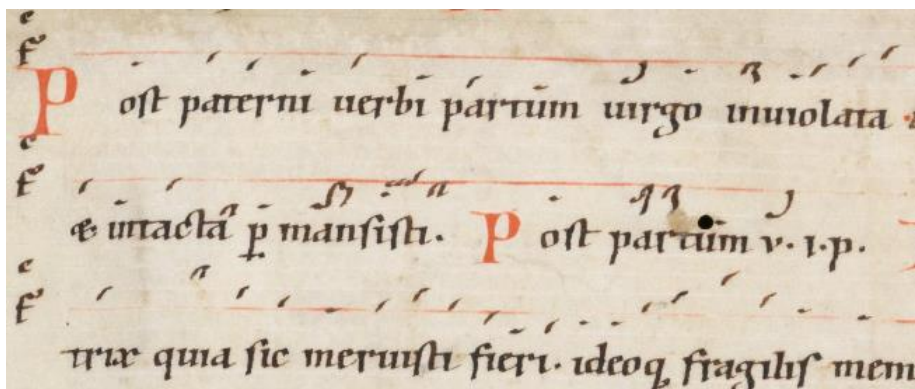 e
f
Post paterni uerbi partum uirgo inuiolata
e
f
& intacta p mansisti. Post partum v. i. p.
e
f
trix quia sic meruisti fieri. ideoq fragilis mem